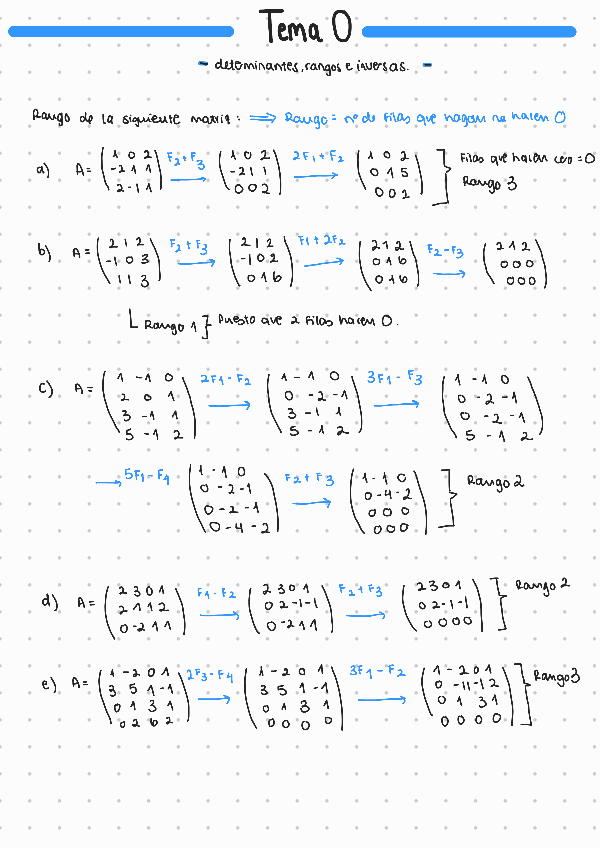 Tema 0
- determinantes, rangos e inversas. -
Rango de la siguiente matriz: ⟹ Rango = nº de filas que hagan no hacen 0
a) A= (1 0 2 / -2 1 1 / 2 -1 1) F2+F3 → (1 0 2 / -2 1 1 / 0 0 2) 2F1+F2 → (1 0 2 / 0 1 5 / 0 0 2) } Filas que hacen cero = 0
Rango 3
b) A= (2 1 2 / -1 0 3 / 1 1 3) F2+F3 → (2 1 2 / -1 0 2 / 0 1 6) F1+2F2 → (2 1 2 / 0 1 6 / 0 1 6) F2-F3 → (2 1 2 / 0 0 0 / 0 0 0)
Rango 1 } Puesto que 2 filas hacen 0.
c) A= (1 -1 0 / 2 0 1 / 3 -1 1 / 5 -1 2) 2F1-F2 → (1 -1 0 / 0 -2 -1 / 3 -1 1 / 5 -1 2) 3F1-F3 → (1 -1 0 / 0 -2 -1 / 0 -2 -1 / 5 -1 2)
→ 5F1-F4 (1 -1 0 / 0 -2 -1 / 0 -2 -1 / 0 -4 -2) F2+F3 → (1 -1 0 / 0 -4 -2 / 0 0 0 / 0 0 0) } Rango 2
d) A= (2 3 0 1 / 2 1 1 2 / 0 -2 1 1) F1-F2 → (2 3 0 1 / 0 2 -1 -1 / 0 -2 1 1) F2+F3 → (2 3 0 1 / 0 2 -1 -1 / 0 0 0 0) } Rango 2
e) A= (1 -2 0 1 / 3 5 1 -1 / 0 1 3 1 / 0 2 6 2) 2F3-F4 → (1 -2 0 1 / 3 5 1 -1 / 0 1 3 1 / 0 0 0 0) 3F1-F2 → (1 -2 0 1 / 0 -11 -1 2 / 0 1 3 1 / 0 0 0 0) } Rango 3